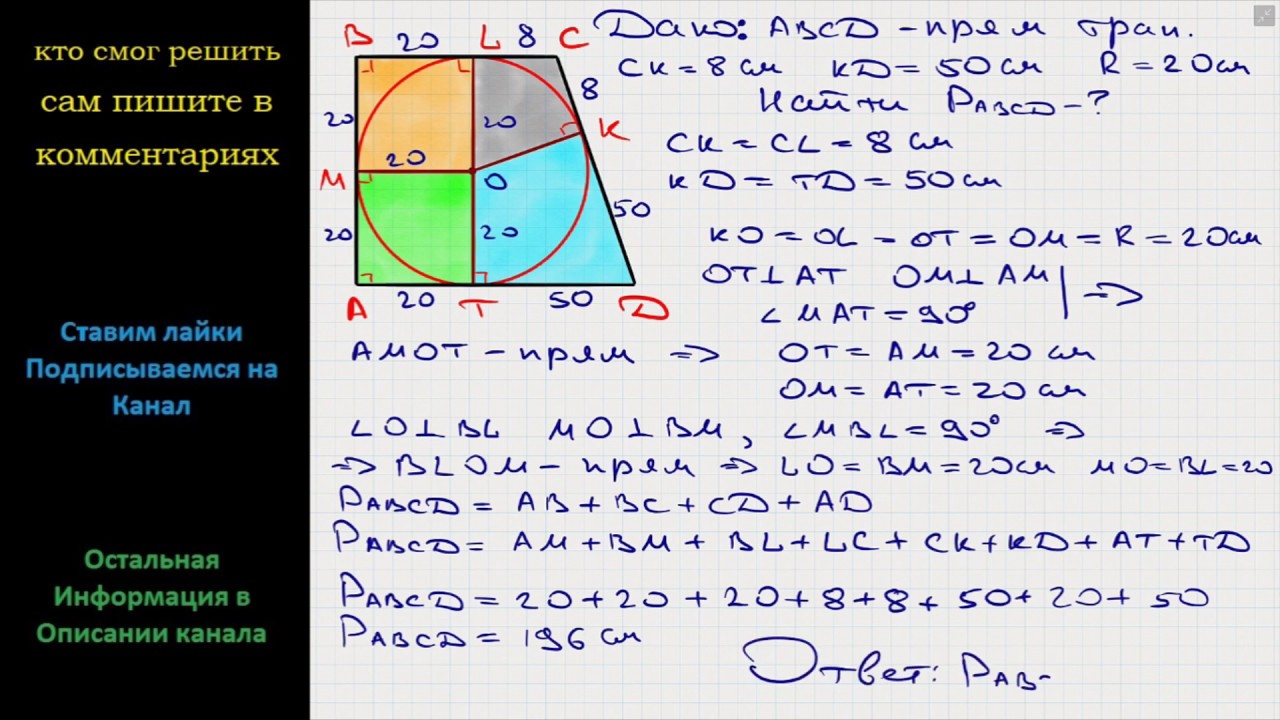 кто смог решить
сам пишите в
комментариях
Ставим лайки
Подписываемся на
Канал
Остальная
Информация в
Описании канала
B 20 L 8 C
8
20 20 K
20
M O
50
20 20
A 20 T 50 D
Дано: ABCD - прям трап.
CK = 8 см KD = 50 см R = 20 см
Найти PABCD - ?
CK = CL = 8 см
KD = TD = 50 см
KO = OL = OT = OM = R = 20 см
OT ⊥ AT OM ⊥ AM | =>
∠ MAT = 90°
AMOT - прям => OT = AM = 20 см
OM = AT = 20 см
LO ⊥ BL MO ⊥ BM, ∠ MBL = 90° =>
=> BLOM - прям => LO = BM = 20 см MO = BL = 20
PABCD = AB + BC + CD + AD
PABCD = AM + BM + BL + LC + CK + KD + AT + TD
PABCD = 20 + 20 + 20 + 8 + 8 + 50 + 20 + 50
PABCD = 196 см
Ответ: PAB-